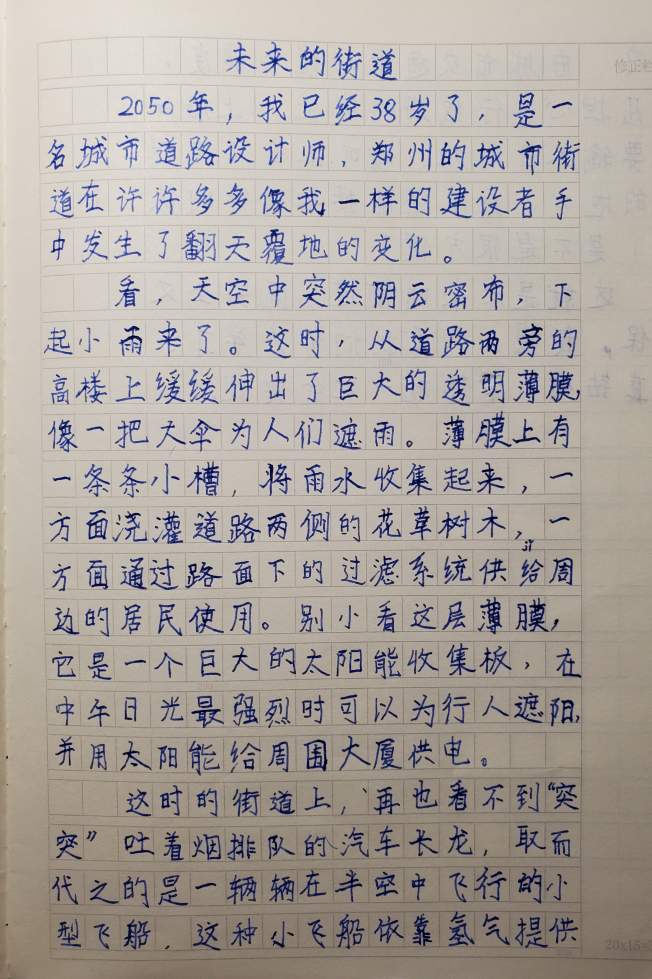 未来的街道
2050年，我已经38岁了，是一
名城市道路设计师，郑州的城市街
道在许许多多像我一样的建设者手
中发生了翻天覆地的变化。
看，天空中突然阴云密布，下
起小雨来了。这时，从道路两旁的
高楼上缓缓伸出了巨大的透明薄膜，
像一把大伞为人们遮雨。薄膜上有
一条条小槽，将雨水收集起来，一
方面浇灌道路两侧的花草树木，一
方面通过路面下的过滤系统供给周
边的居民使用。别小看这层薄膜，
它是一个巨大的太阳能收集板，在
中午日光最强烈时可以为行人遮阳，
并用太阳能给周围大厦供电。
这时的街道上，再也看不到“突
突”吐着烟排队的汽车长龙，取而
代之的是一辆辆在半空中飞行的小
型飞船，这种小飞船依靠氢气提供